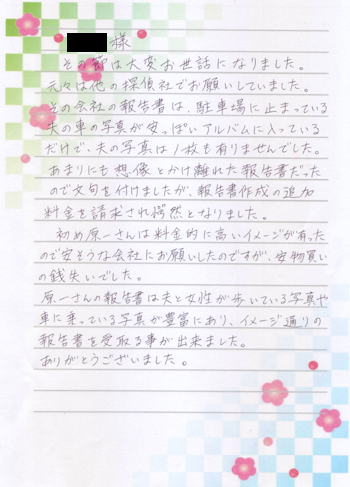 様
その節は大変お世話になりました。
元々は他の探偵社でお願いしていました。
その会社の報告書は、駐車場に止まっている
夫の車の写真が安っぽいアルバムに入っている
だけで、夫の写真は1枚も有りませんでした。
あまりにも想像とかけ離れた報告書だった
ので文句を付けましたが、報告書作成の追加
料金を請求され愕然となりました。
初め原一さんは料金的に高いイメージが有った
ので安そうな会社にお願いしたのですが、安物買い
の銭失いでした。
原一さんの報告書は夫と女性が歩いている写真や
車に乗っている写真が豊富にあり、イメージ通りの
報告書を受取る事が出来ました。
ありがとうございました。